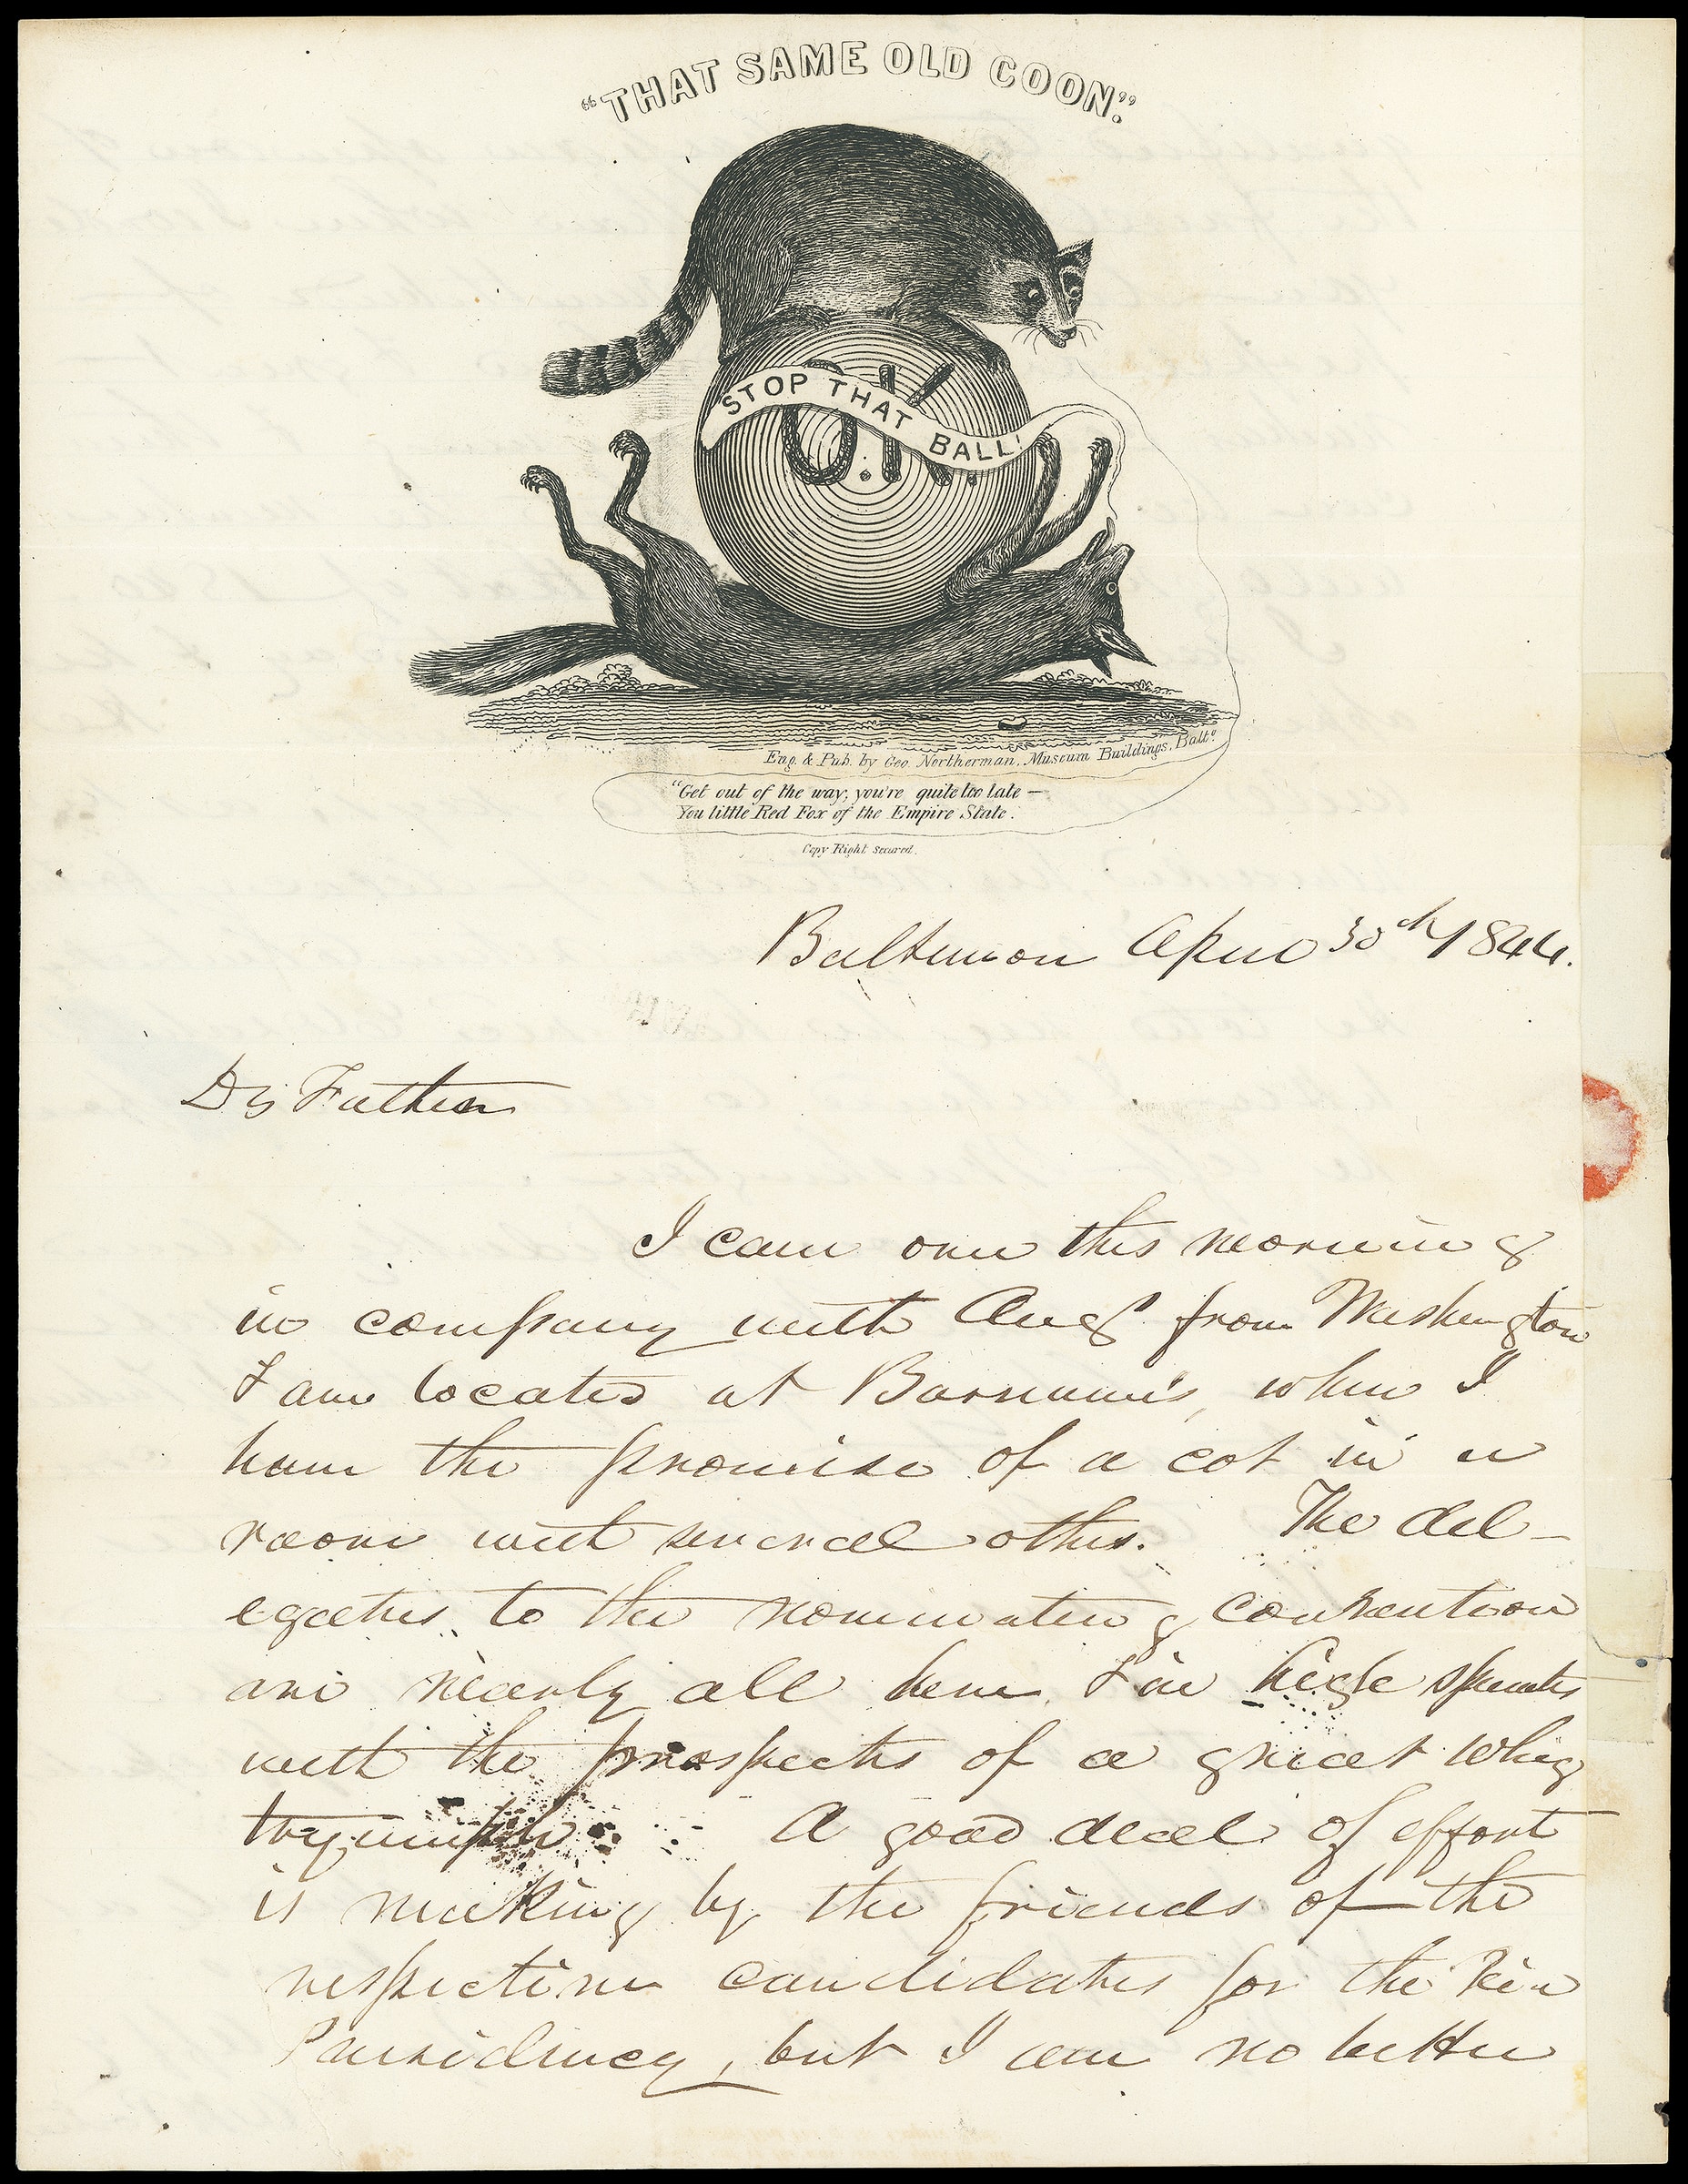 "THAT SAME OLD COON."
O.K.
STOP THAT BALL!
Eng. & Pub. by Geo. Northerman, Museum Buildings, Balto.
"Get out of the way; you're quite too late —
You little Red Fox of the Empire State.
Copy Right Secured.
Baltimore April 30th 1844.
Dr Father
I came over this morning
in company with Augs from Washington
I am located at Barnum's, where I
have the promise of a cot in a
room with several others. The del-
egates to the nominating convention
are nearly all here & in high spirits
with the prospects of a great Whig
tryumph. A good deal of effort
is making by the friends of the
respective candidates for the Vice
Presidency, but I am no better